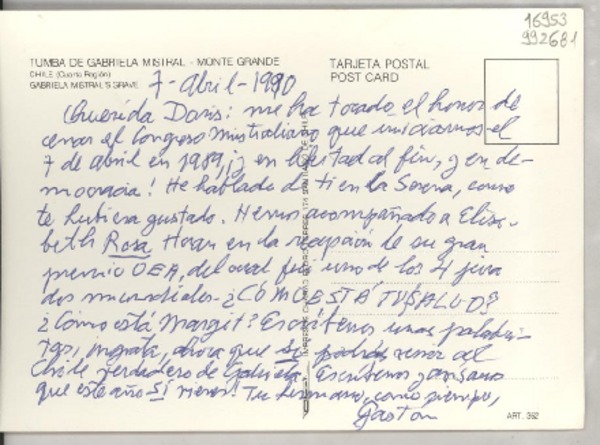 16953
992681
TUMBA DE GABRIELA MISTRAL - MONTE GRANDE
CHILE (Cuarta Región)
GABRIELA MISTRAL'S GRAVE
TARJETA POSTAL
POST CARD
7-Abril-1990
Querida Doris: me ha tocado el honor de
cerrar el Congreso Mistraliano que iniciamos el
7 de abril en 1989, ¡y en libertad al fin, y en de-
mocracia! He hablado de ti en la Serena, como
te hubiera gustado. Hemos acompañado a Elisa-
beth Rosa Horan en la recepción de su gran
premio OEA, del cual fui uno de los 4 jura
dos mundiales - ¿CÓMO ESTÁ TU SALUD?
¿Cómo está Margit? Escríbenos unas palabri-
tas, ingrata, ahora que podrás venir al
Chile verdadero de Gabriela. Escríbenos y avísanos
que este año SÍ vienes! Tu hermano, como siempre,
Gastón
ART. 362